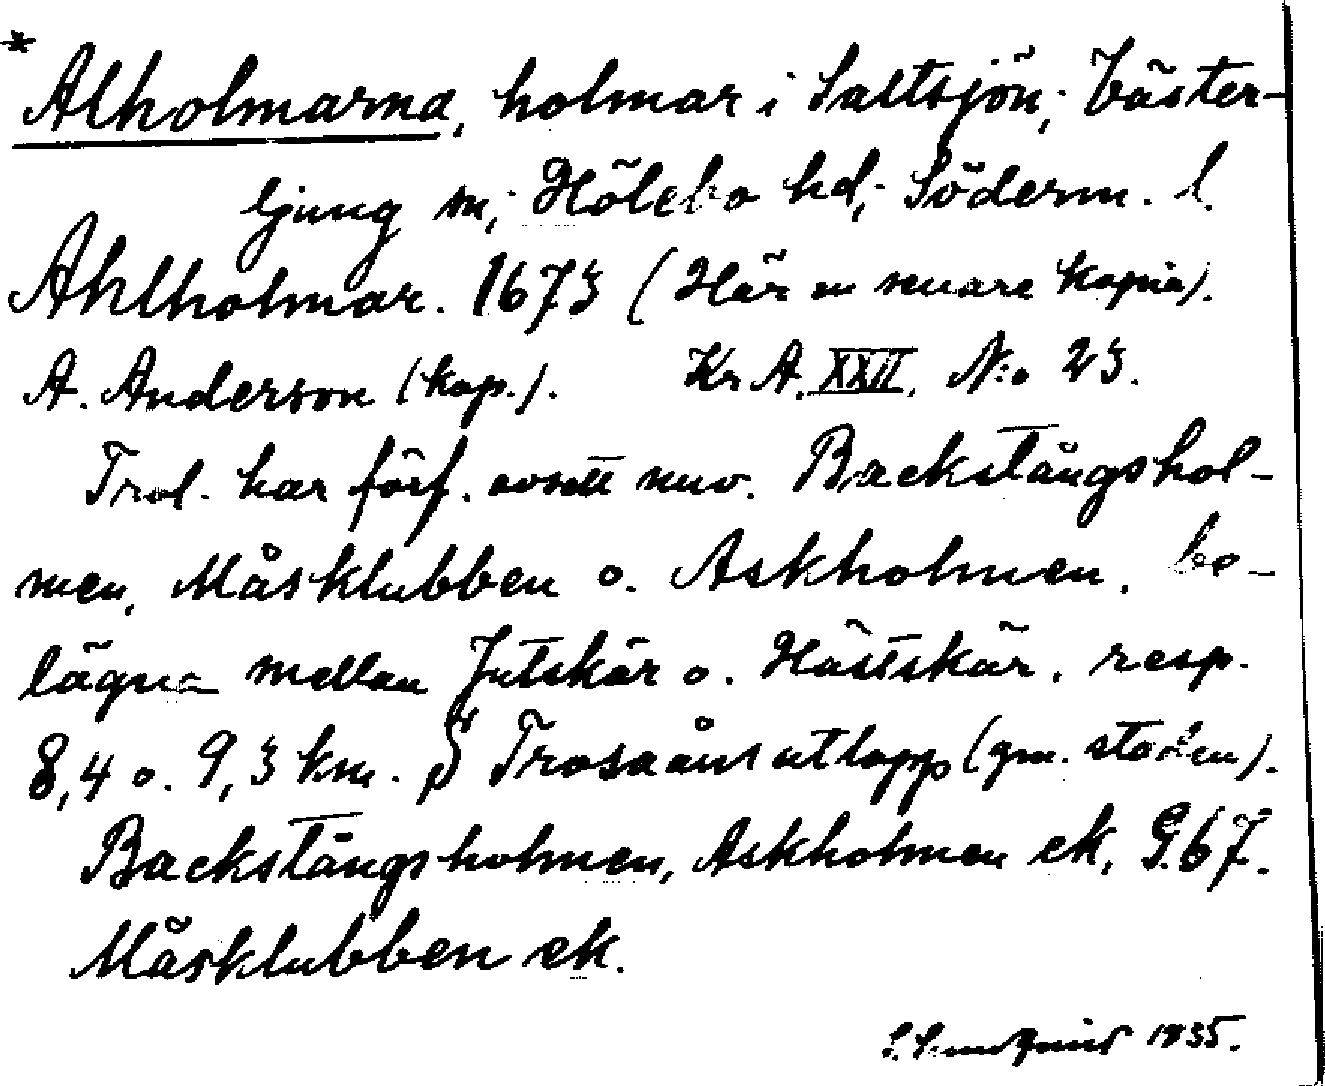 * Alholmarna, holmar i Saltsjön; Väster-
ljung sn; Hölebo hd; Söderm. l.
Ahlholmar. 1673 (Här en senare kopia).
A. Anderson (kop.). Kr A. XXII. No 23.
Trol. har förf. avsett nuv. Backstångshol-
men, Måsklubben o. Askholmen, be-
lägna mellan Jutskär o. Hästskär, resp.
8,4 o. 9,3 km. S Trosaåns utlopp (gm. staden).
Backstångsholmen, Askholmen ek, G.67.
Måsklubben ek.
1935.